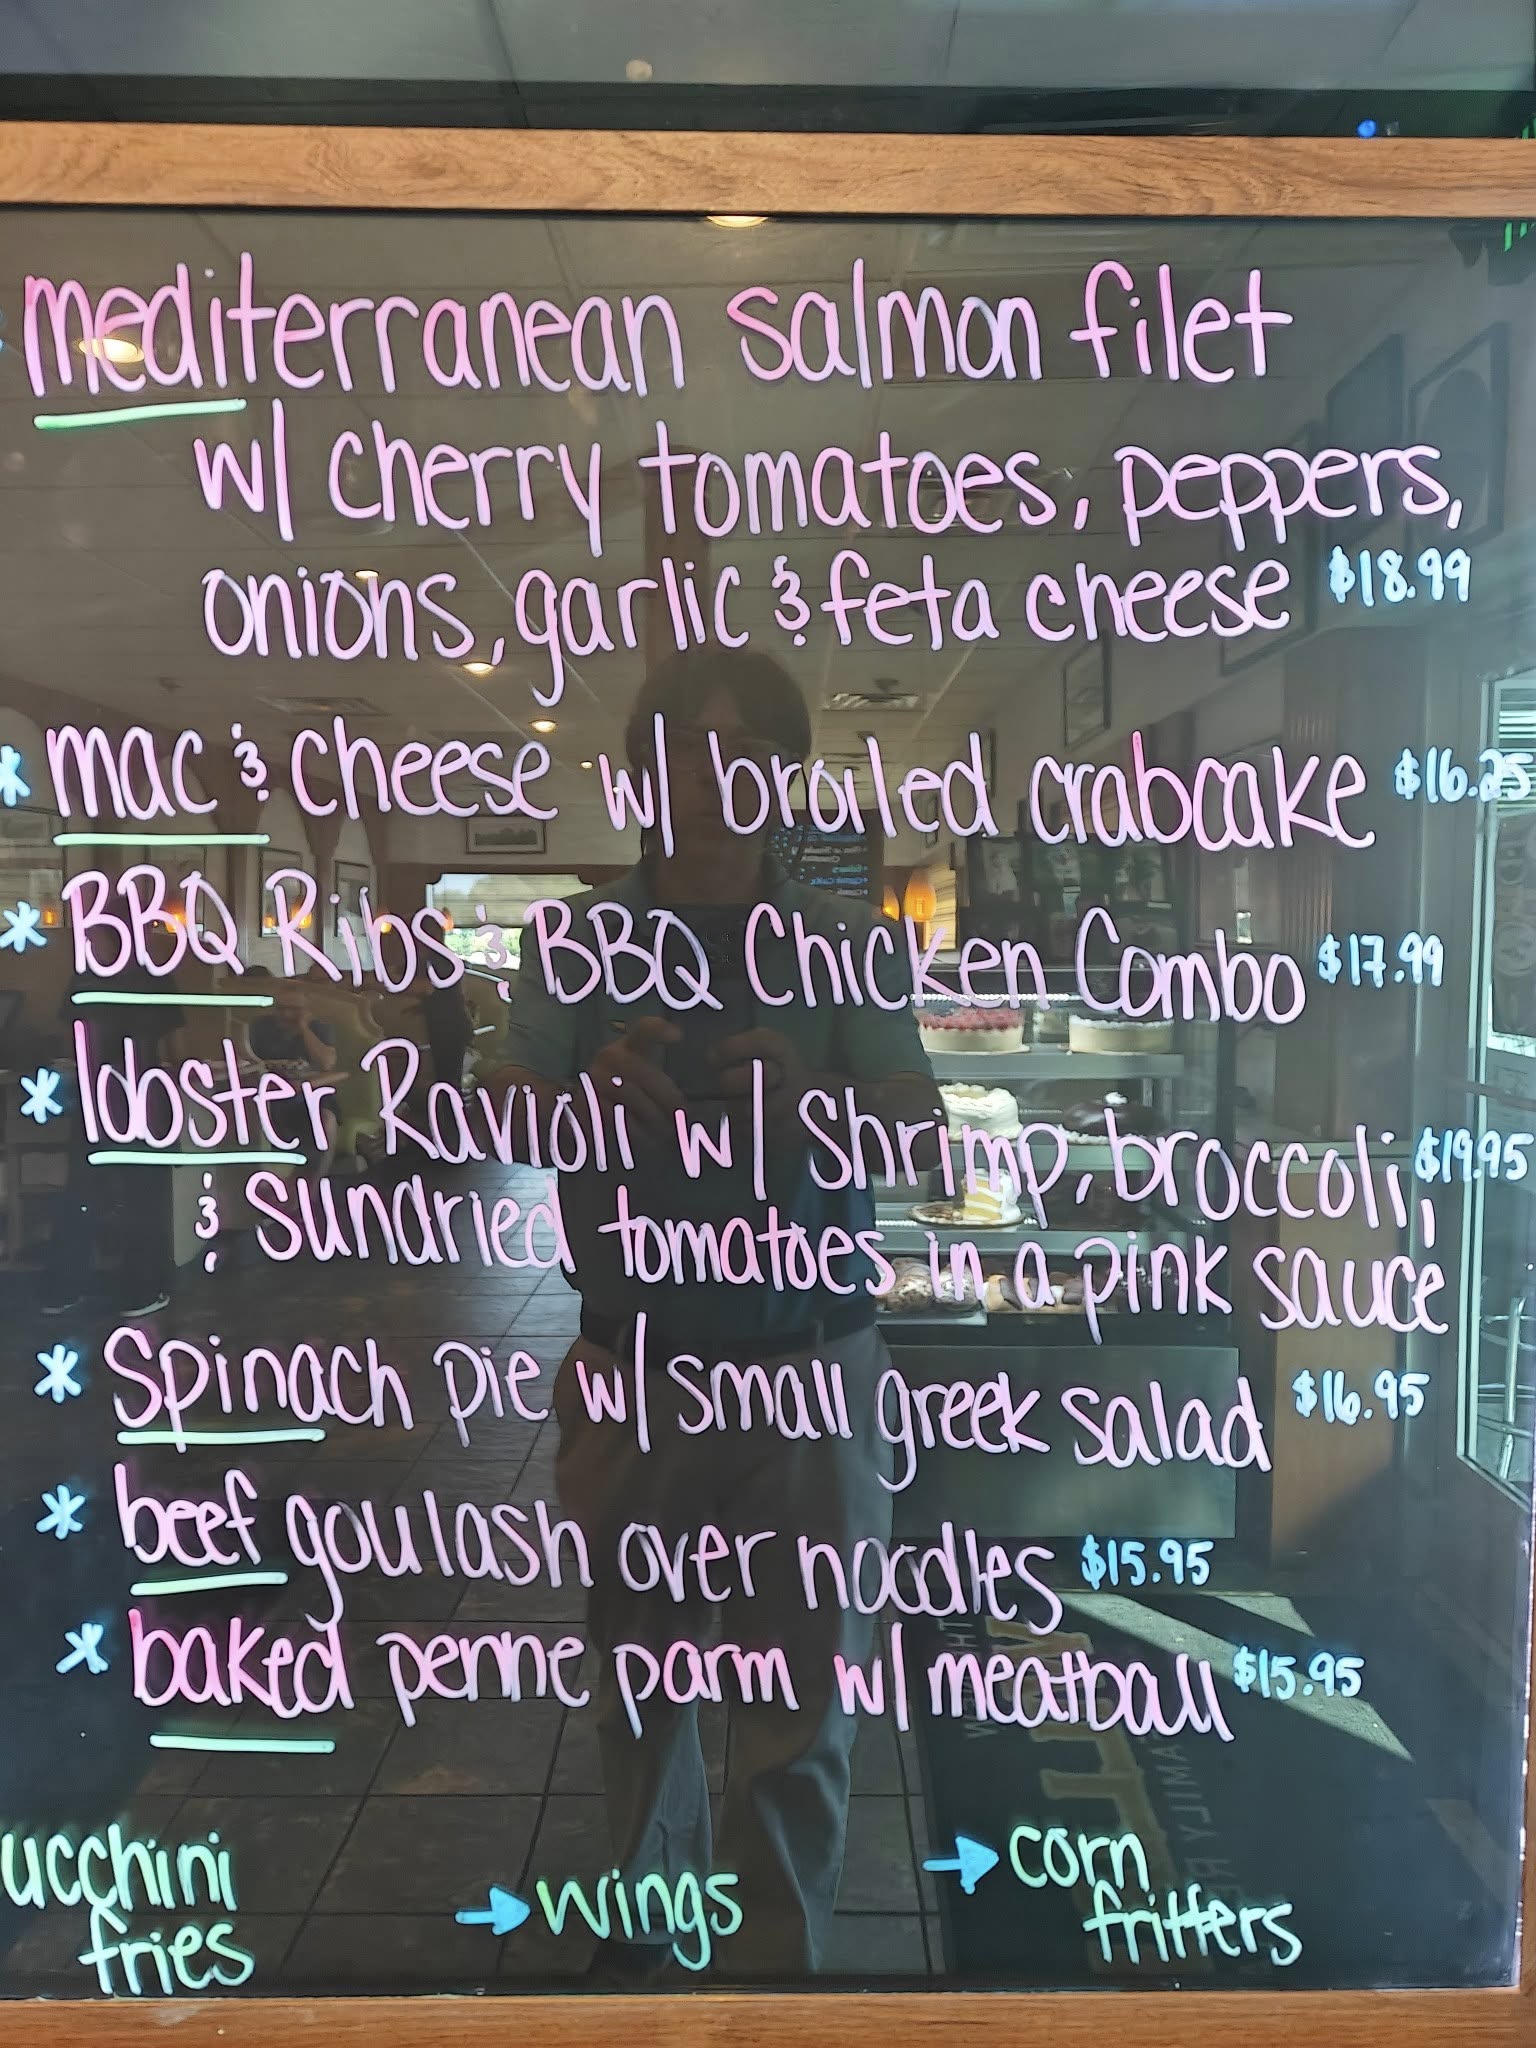 mediterranean salmon filet
w/ cherry tomatoes, peppers,
onions, garlic & feta cheese $18.99
* mac & cheese w/ broiled crabcake $16.25
* BBQ Ribs & BBQ Chicken Combo $17.99
* lobster Ravioli w/ shrimp, broccoli, $19.95
& sundried tomatoes in a pink sauce
* Spinach pie w/ small greek salad $16.95
* beef goulash over noodles $15.95
* baked penne parm w/ meatball $15.95
ucchini
fries
→ wings
→ corn
fritters